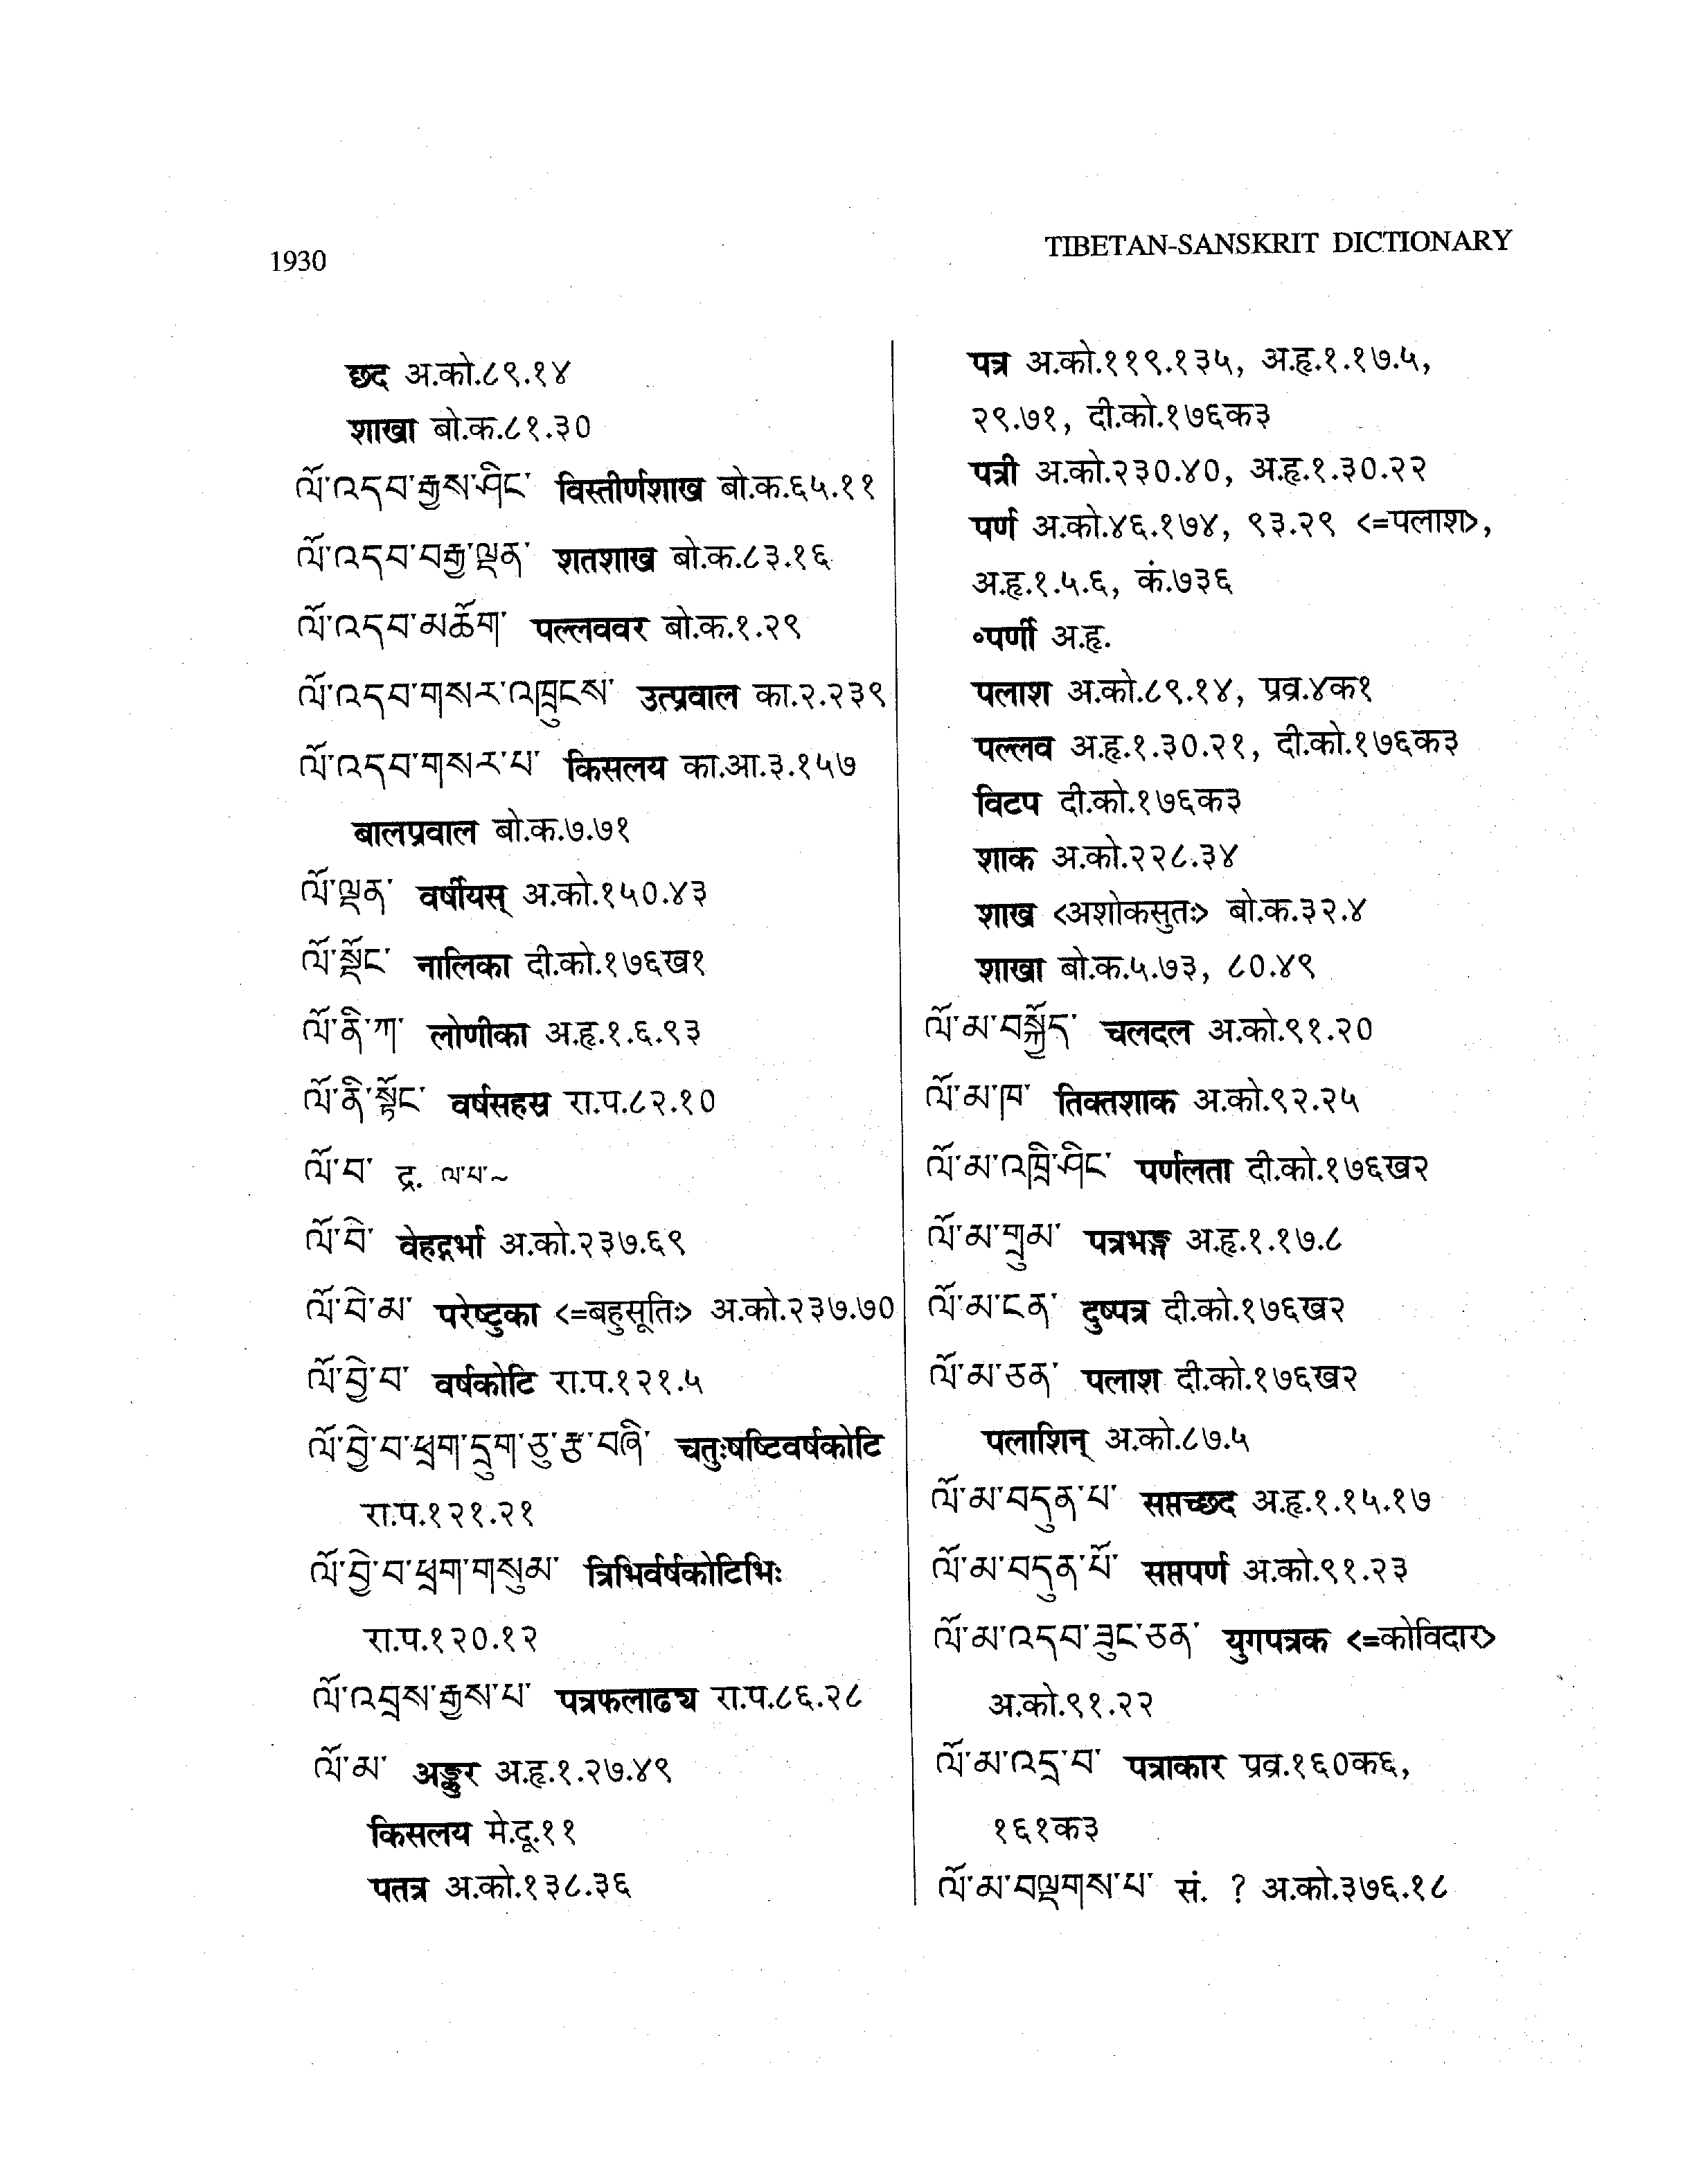 1930
TIBETAN-SANSKRIT DICTIONARY
छद अ.को.८९.१४
शाखा बो.क.८१.३०
ལོ་འདབ་རྒྱས་ཤིང་ विस्तीर्णशाख बो.क.६५.११
ལོ་འདབ་བརྒྱ་ལྡན་ शतशाख बो.क.८३.१६
ལོ་འདབ་མཆོག་ पल्लववर बो.क.१.२९
ལོ་འདབ་གསར་འཁྲུངས་ उत्प्रवाल का.२.२३९
ལོ་འདབ་གསར་པ་ किसलय का.आ.३.१५७
बालप्रवाल बो.क.७.७१
ལོ་ལྡན་ वर्षीयस् अ.को.१५०.४३
ལོ་སྡོང་ नालिका दी.को.१७६ख१
ལོ་ནི་ཀ་ लोणीका अ.हृ.१.६.९३
ལོ་ནི་སྟོང་ वर्षसहस्र रा.प.८२.१०
ལོ་བ་ द्र. ལ་པ་~
ལོ་བེ་ वेहद्गर्भा अ.को.२३७.६९
ལོ་བེ་མ་ परेष्टुका <=बहुसूतिः> अ.को.२३७.७०
ལོ་བྱེ་བ་ वर्षकोटि रा.प.१२१.५
ལོ་བྱེ་བ་ཕྲག་དྲུག་ཅུ་རྩ་བཞི་ चतुःषष्टिवर्षकोटि
रा.प.१२१.२१
ལོ་བྱེ་བ་ཕྲག་གསུམ་ त्रिभिर्वर्षकोटिभिः
रा.प.१२०.१२
ལོ་འབྲས་རྒྱས་པ་ पत्रफलाढ्य रा.प.८६.२८
ལོ་མ་ अङ्कुर अ.हृ.१.२७.४९
किसलय मे.दू.११
पतत्र अ.को.१३८.३६
पत्र अ.को.११९.१३५, अ.हृ.१.१७.५,
२९.७१, दी.को.१७६क३
पत्री अ.को.२३०.४०, अ.हृ.१.३०.२२
पर्ण अ.को.४६.१७४, ९३.२९ <=पलाश>,
अ.हृ.१.५.६, कं.७३६
॰पर्णी अ.हृ.
पलाश अ.को.८९.१४, प्रव्र.४क१
पल्लव अ.हृ.१.३०.२१, दी.को.१७६क३
विटप दी.को.१७६क३
शाक अ.को.२२८.३४
शाख <अशोकसुतः> बो.क.३२.४
शाखा बो.क.५.७३, ८०.४९
ལོ་མ་བསྐྱོད་ चलदल अ.को.९१.२०
ལོ་མ་ཁ་ तिक्तशाक अ.को.९२.२५
ལོ་མ་འཁྲི་ཤིང་ पर्णलता दी.को.१७६ख२
ལོ་མ་གྲུམ་ पत्रभङ्ग अ.हृ.१.१७.८
ལོ་མ་ངན་ दुष्पत्र दी.को.१७६ख२
ལོ་མ་ཅན་ पलाश दी.को.१७६ख२
पलाशिन् अ.को.८७.५
ལོ་མ་བདུན་པ་ सप्तच्छद अ.हृ.१.१५.१७
ལོ་མ་བདུན་པོ་ सप्तपर्ण अ.को.९१.२३
ལོ་མ་འདབ་ཟུང་ཅན་ युगपत्रक <=कोविदार>
अ.को.९१.२२
ལོ་མ་འདྲ་བ་ पत्राकार प्रव्र.१६०क६,
१६१क३
ལོ་མ་བལྡགས་པ་ सं. ? अ.को.३७६.१८